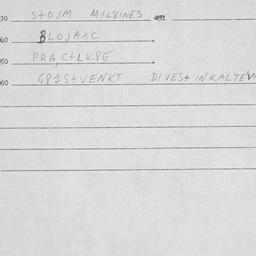 30 STOJM MIL8INES
40 BLOJAXC
50 PRA,CTLK8E
60 G8IST VENKT DIVEST INKALTEV